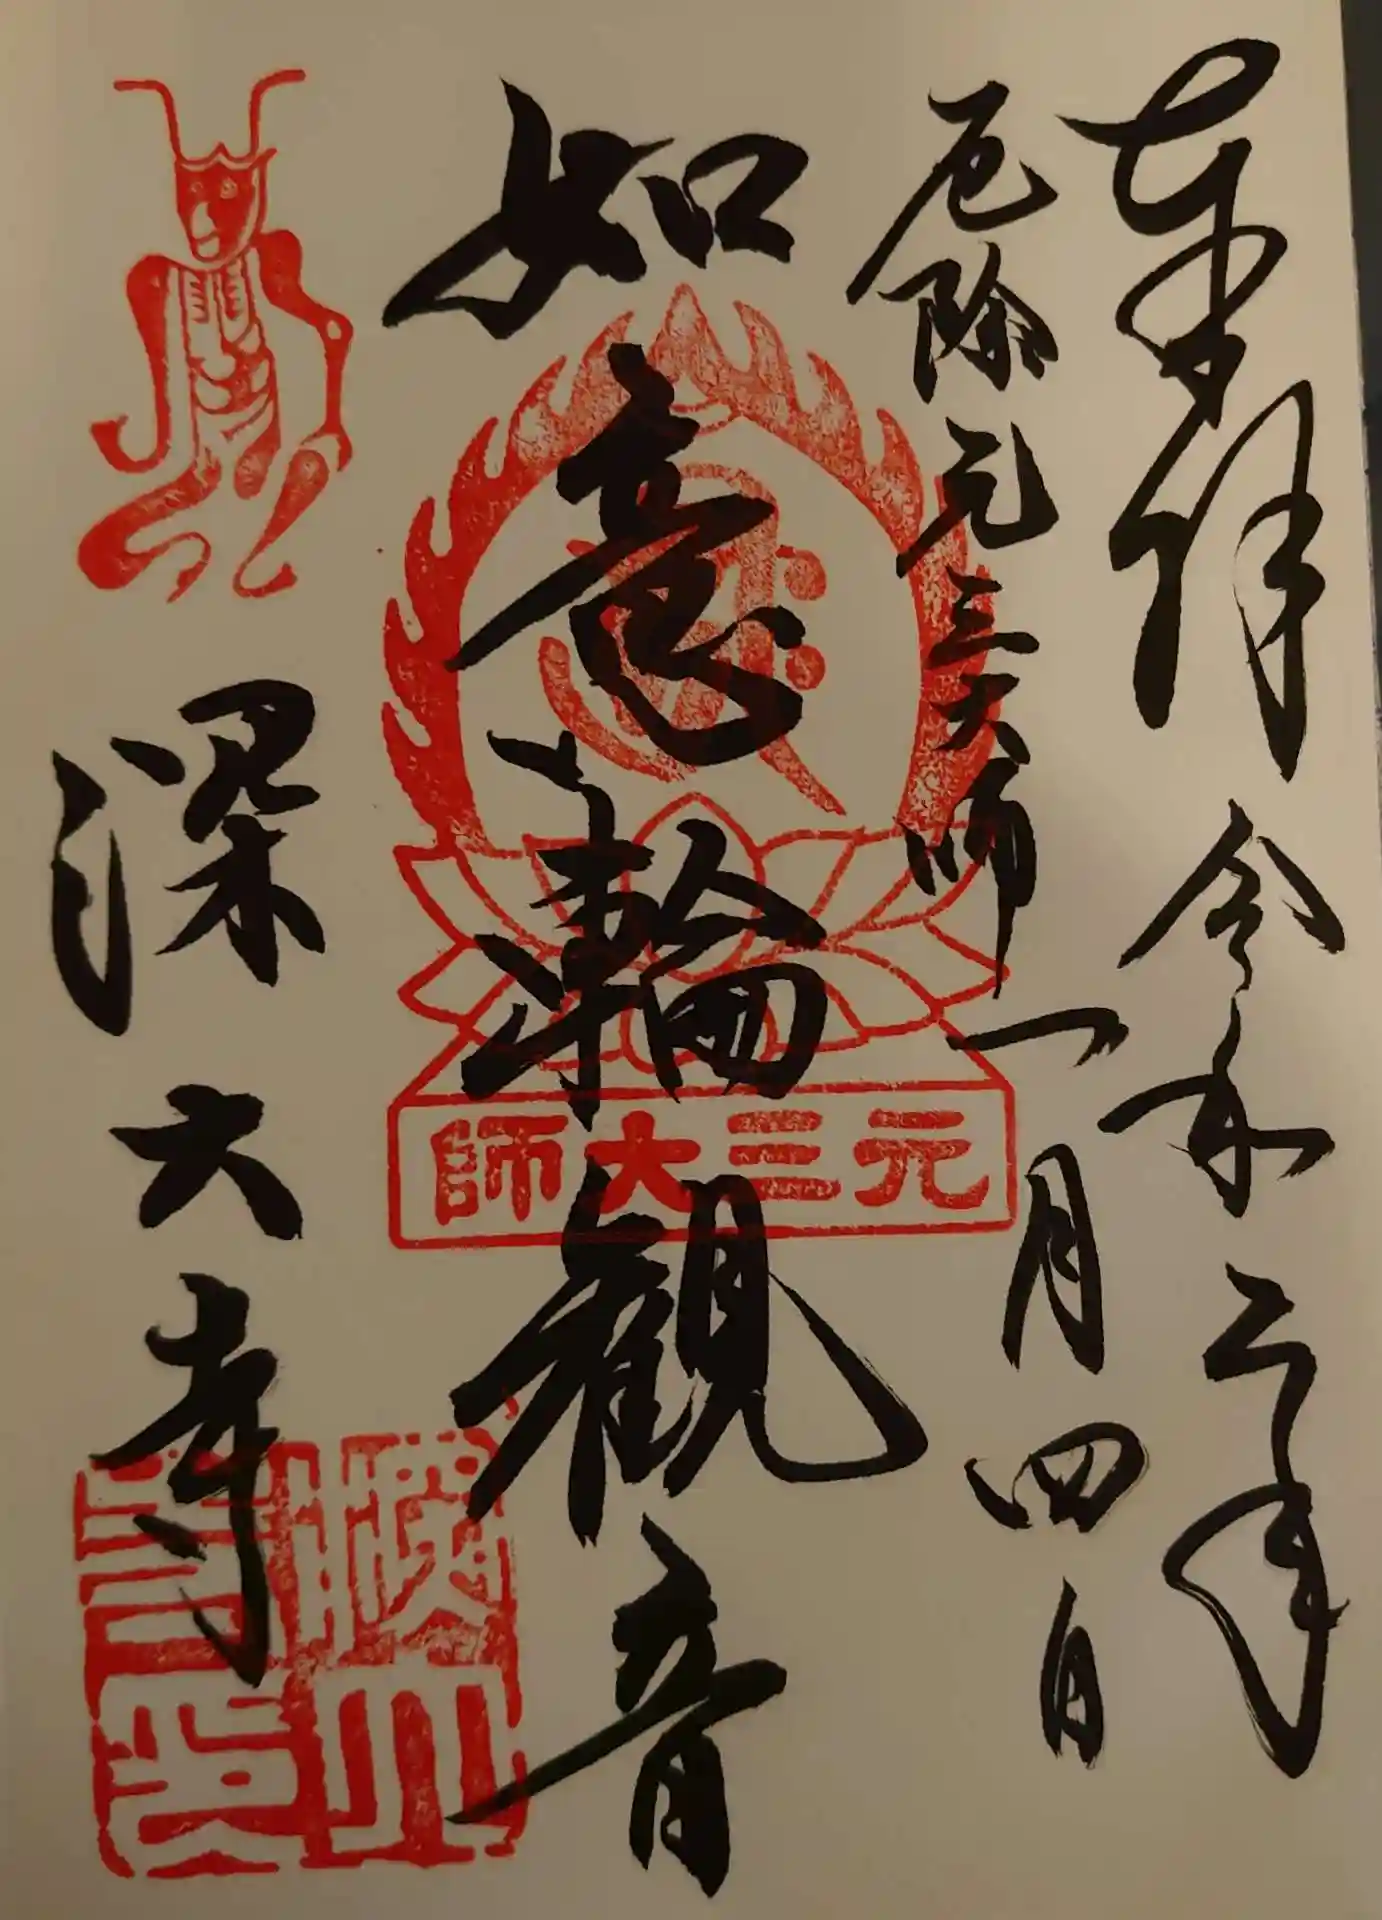 奉拝 令和二年
一月四日
厄除元三大師
如意輪観音
元三大師
深大寺
深大寺印